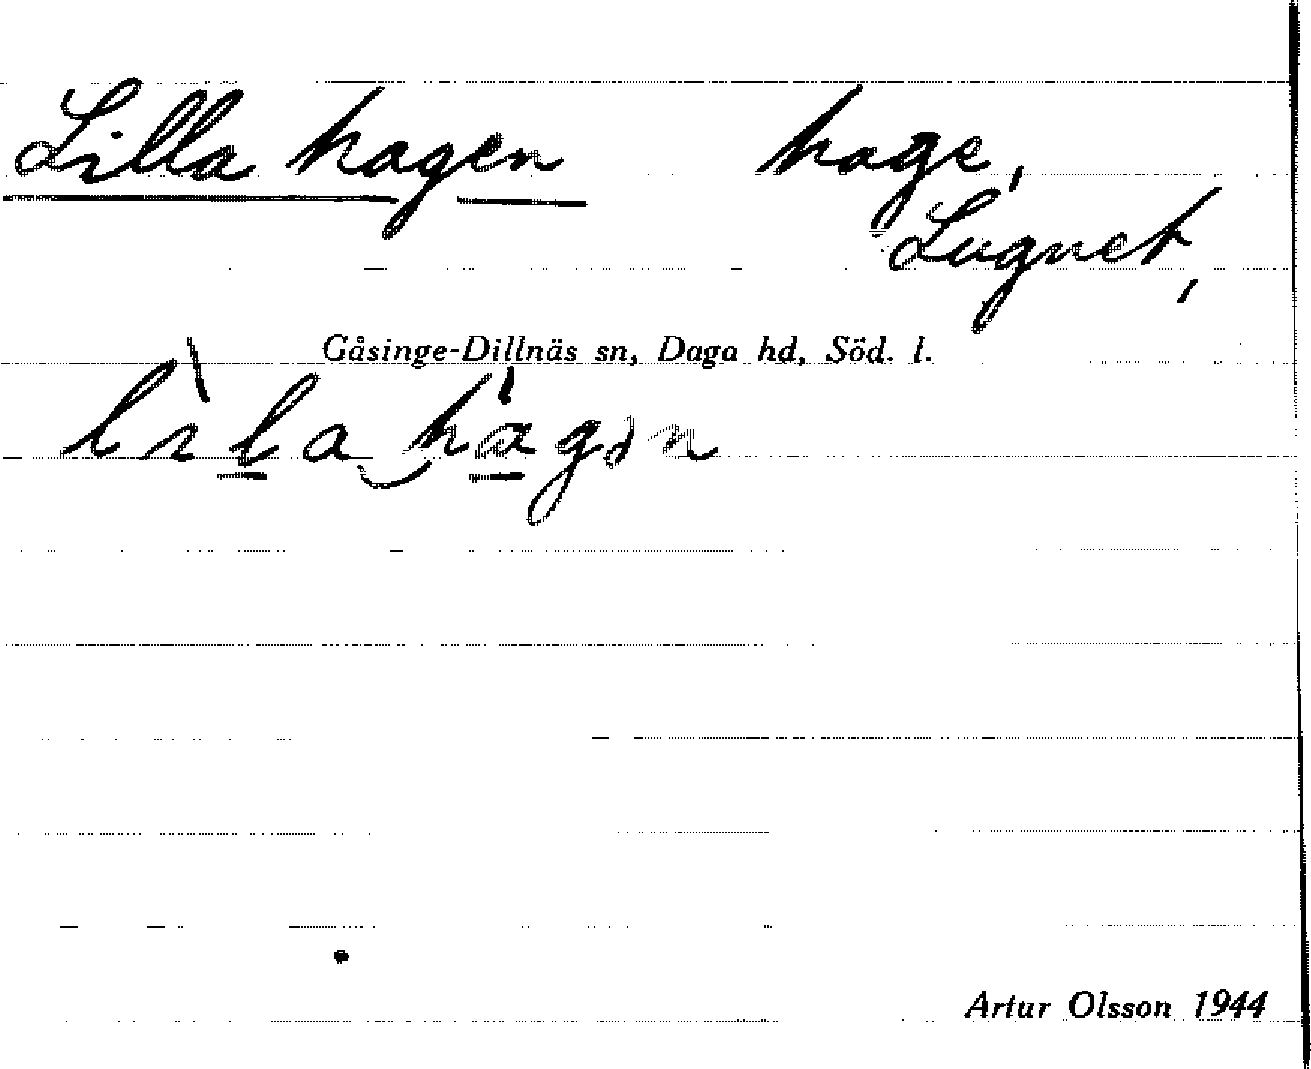 Lilla hagen hage,
Lugnet,
Gåsinge-Dillnäs sn, Daga hd, Söd. l.
lìla hagən
Artur Olsson 1944